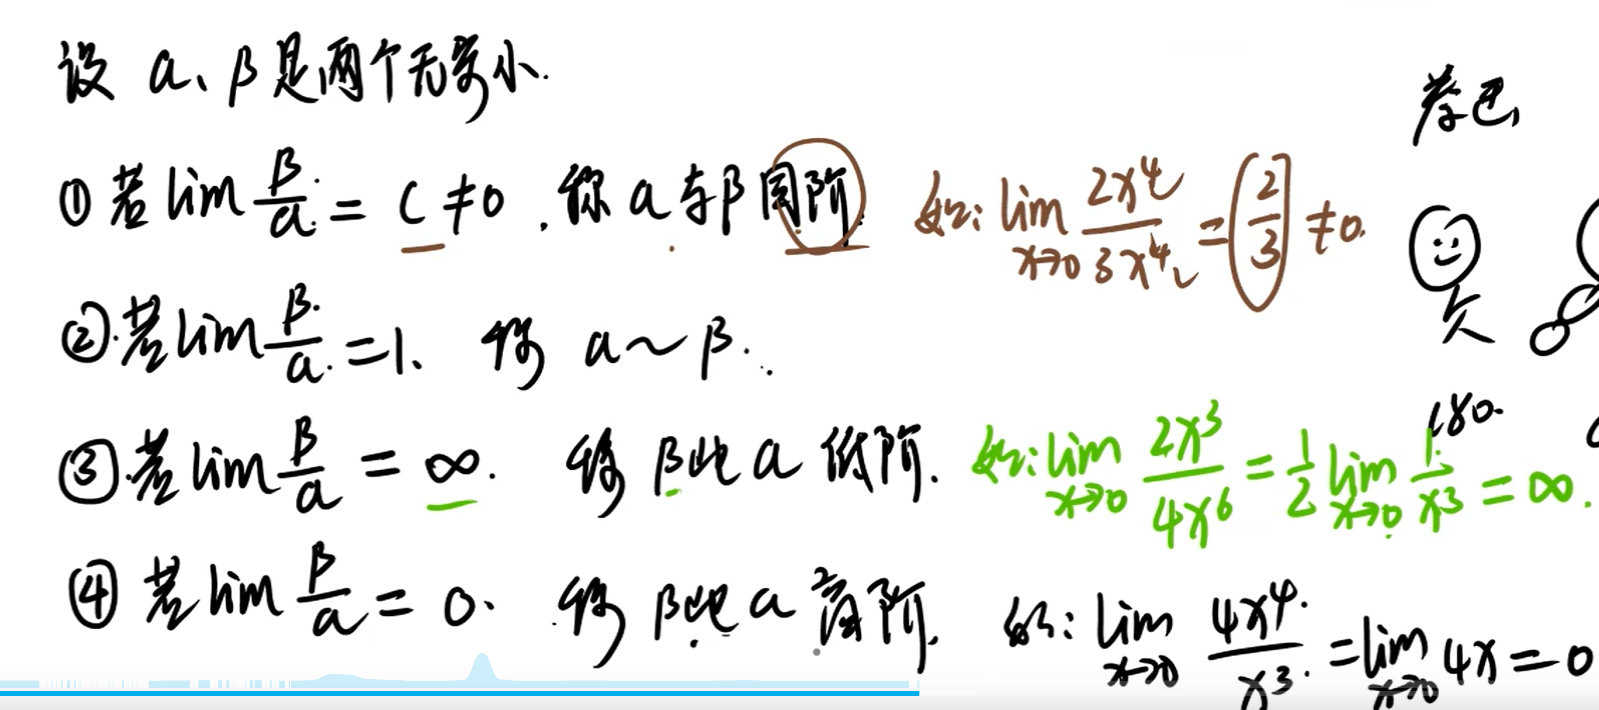 设 α、β是两个无穷小.
① 若 lim β/α = C ≠ 0 . 称 α 与 β 同阶. 如: lim x→0 2x⁴/3x⁴ = 2/3 ≠ 0.
② 若 lim β/α = 1. 称 α ~ β.
③ 若 lim β/α = ∞. 称 β比 α 低阶. 如: lim x→0 2x³/4x⁶ = 1/2 lim x→0 1/x³ = ∞.
180.
④ 若 lim β/α = 0. 称 β比 α 高阶. 如: lim x→0 4x⁴/x³ = lim x→0 4x = 0